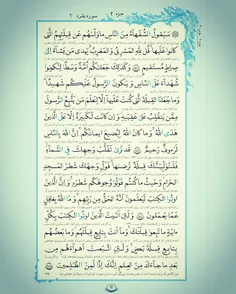 جزء ٢ سوره بقره ٢
سَيَقُولُ السُّفَهَاءُ مِنَ النَّاسِ مَا وَلَّىٰهُمْ عَنْ قِبْلَتِهِمُ الَّتِي
كَانُوا عَلَيْهَا قُلْ لِلَّهِ الْمَشْرِقُ وَالْمَغْرِبُ يَهْدِي مَنْ يَشَاءُ إِلَىٰ
صِرَاطٍ مُسْتَقِيمٍ وَكَذَٰلِكَ جَعَلْنَاكُمْ أُمَّةً وَسَطًا لِتَكُونُوا
شُهَدَاءَ عَلَى النَّاسِ وَيَكُونَ الرَّسُولُ عَلَيْكُمْ شَهِيدًا
وَمَا جَعَلْنَا الْقِبْلَةَ الَّتِي كُنْتَ عَلَيْهَا إِلَّا لِنَعْلَمَ مَنْ يَتَّبِعُ الرَّسُولَ
مِمَّنْ يَنْقَلِبُ عَلَىٰ عَقِبَيْهِ وَإِنْ كَانَتْ لَكَبِيرَةً إِلَّا عَلَى الَّذِينَ
هَدَى اللَّهُ وَمَا كَانَ اللَّهُ لِيُضِيعَ إِيمَانَكُمْ إِنَّ اللَّهَ بِالنَّاسِ
لَرَءُوفٌ رَحِيمٌ قَدْ نَرَىٰ تَقَلُّبَ وَجْهِكَ فِي السَّمَاءِ
فَلَنُوَلِّيَنَّكَ قِبْلَةً تَرْضَاهَا فَوَلِّ وَجْهَكَ شَطْرَ الْمَسْجِدِ
الْحَرَامِ وَحَيْثُ مَا كُنْتُمْ فَوَلُّوا وُجُوهَكُمْ شَطْرَهُ وَإِنَّ الَّذِينَ
أُوتُوا الْكِتَابَ لَيَعْلَمُونَ أَنَّهُ الْحَقُّ مِنْ رَبِّهِمْ وَمَا اللَّهُ بِغَافِلٍ
عَمَّا يَعْمَلُونَ وَلَئِنْ أَتَيْتَ الَّذِينَ أُوتُوا الْكِتَابَ بِكُلِّ
آيَةٍ مَا تَبِعُوا قِبْلَتَكَ وَمَا أَنْتَ بِتَابِعٍ قِبْلَتَهُمْ وَمَا بَعْضُهُمْ
بِتَابِعٍ قِبْلَةَ بَعْضٍ وَلَئِنِ اتَّبَعْتَ أَهْوَاءَهُمْ مِنْ
بَعْدِ مَا جَاءَكَ مِنَ الْعِلْمِ إِنَّكَ إِذًا لَمِنَ الظَّالِمِينَ